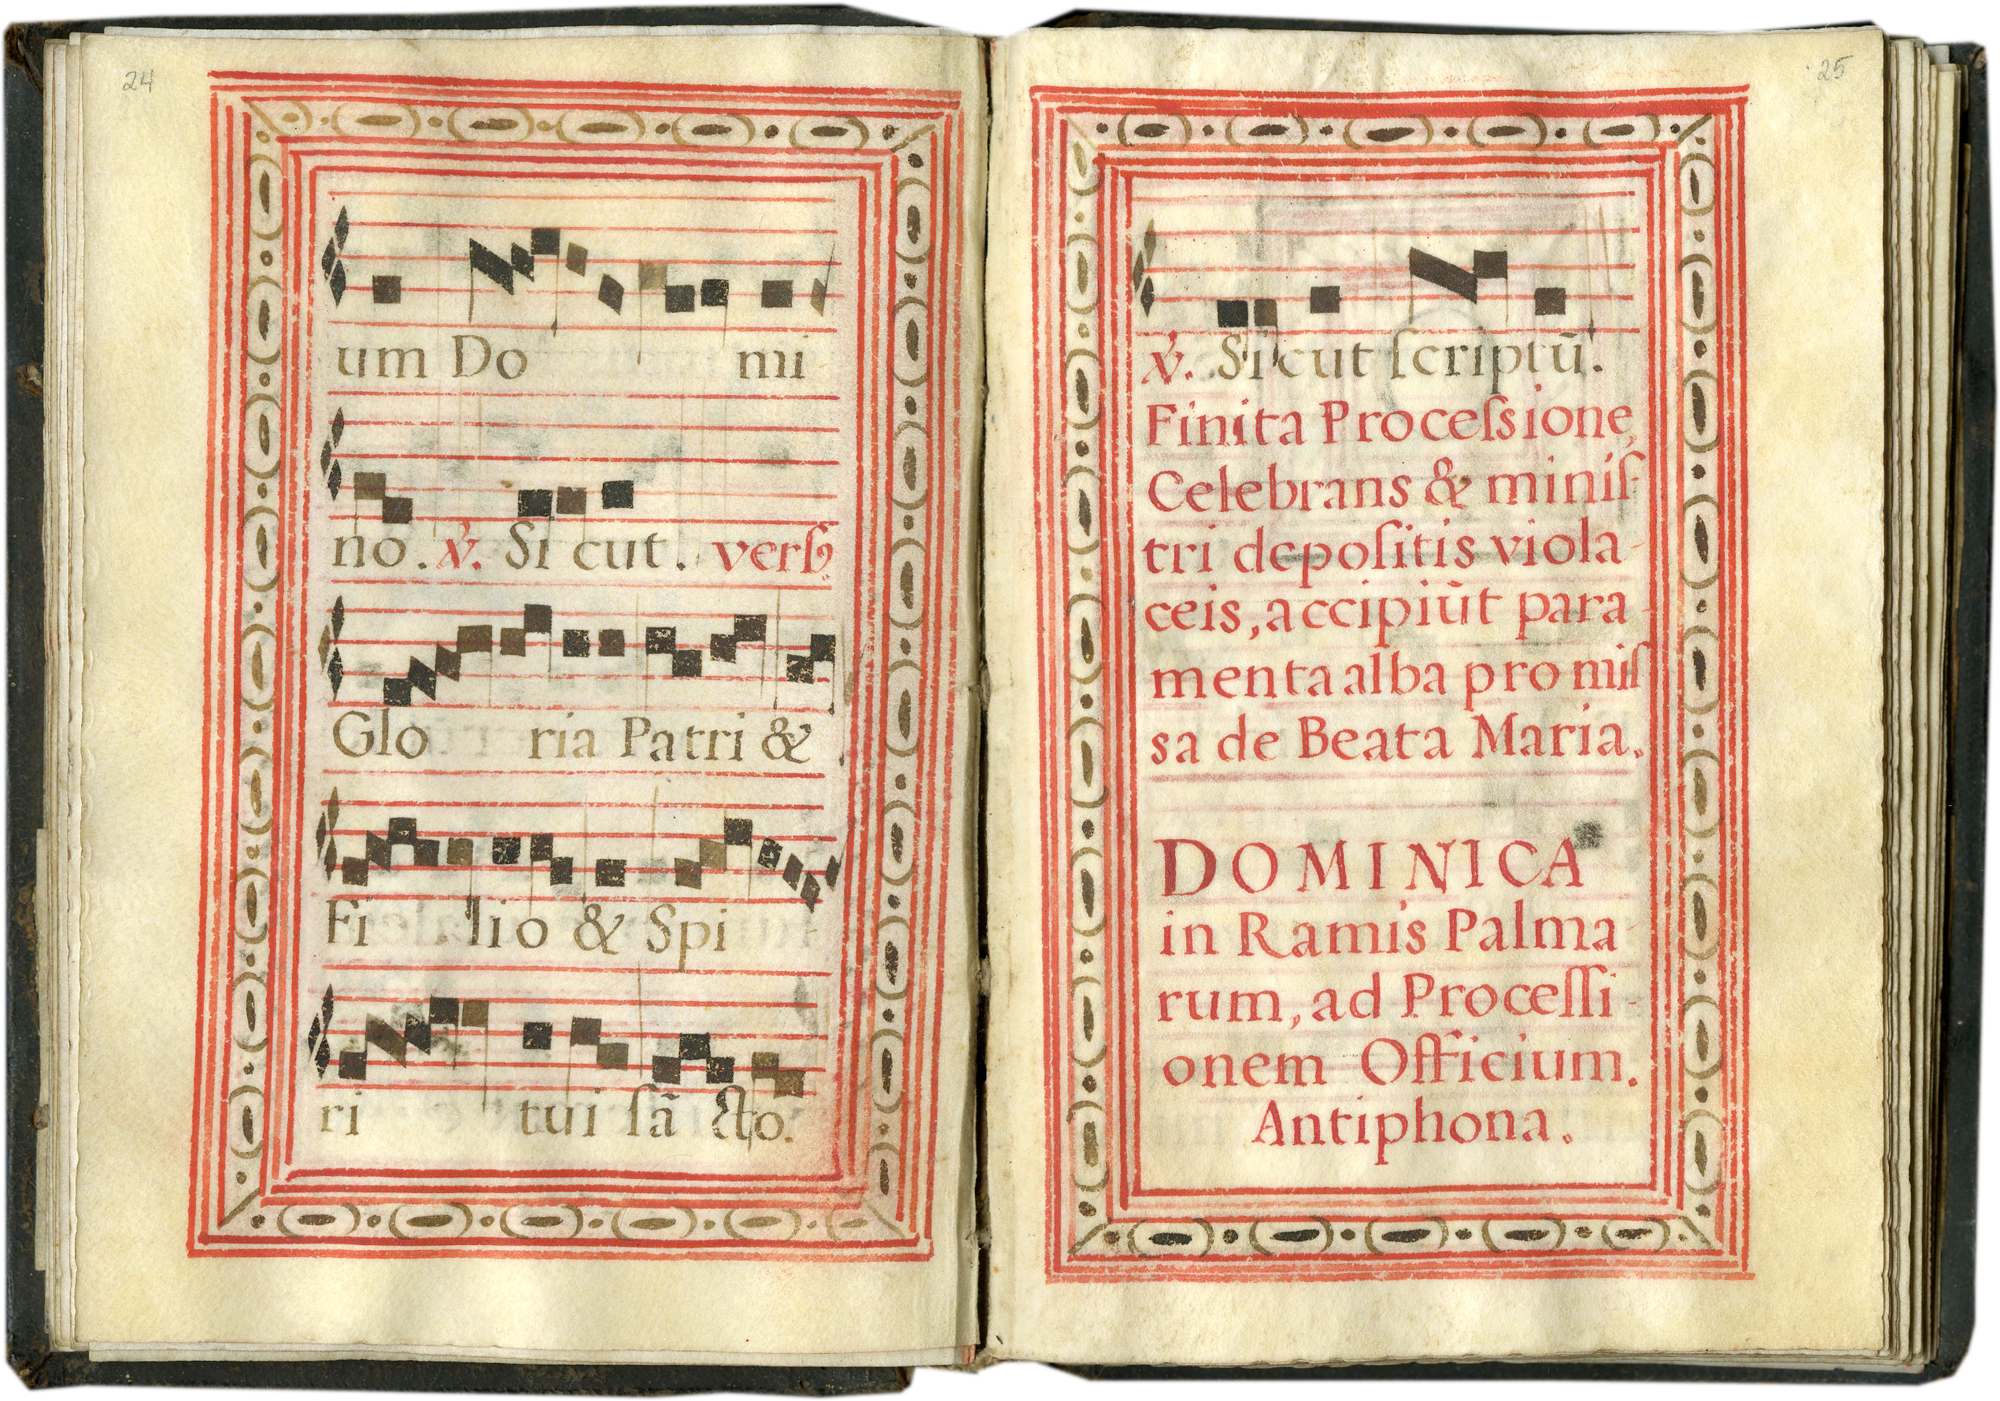 24
um Do mi
no. ℣. Si cut. versꝯ.
Glo ria Patri &
Fi lio & Spi -
ri tui ſã cto.
25
℣. Si cut ſcriptũ.
Finita Proceſsione,
Celebrans & miniſ-
tri depoſitis viola-
ceis, accipiũt para-
menta alba pro miſ
sa de Beata Maria.
DOMINICA
in Ramis Palma-
rum, ad Proceſſi-
onem Officium.
Antiphona.